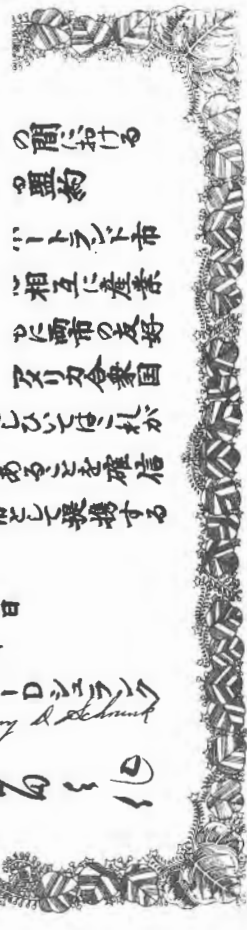 の間における
盟約
ートランド市
相互に産業
に両市の友好
アメリカ合衆国
ひいてはこれが
あることを確信
として提携する
日
ーDシュランク
D Schrunk